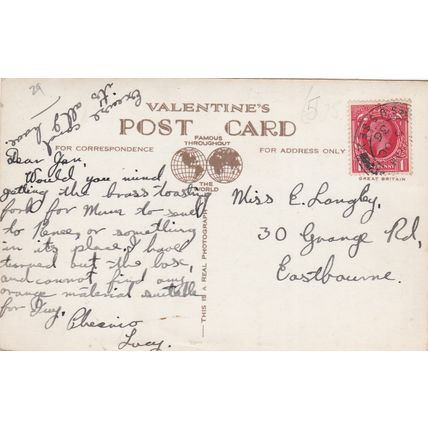 29
Excuse
its
all I have
5
VALENTINE'S
POST CARD
FAMOUS
THROUGHOUT
THE
WORLD
FOR CORRESPONDENCE
FOR ADDRESS ONLY
GREAT BRITAIN
THIS IS A REAL PHOTOGRAPH
Dear Jan,
Would you mind
getting the brass toasting
fork for Mum to send
to Renee, or something
in its place, I have
turned out the box,
and cannot find any
orange material suitable
for Guy.
Cheerio
Lucy.
Miss E. Langley,
30 Grange Rd,
Eastbourne.